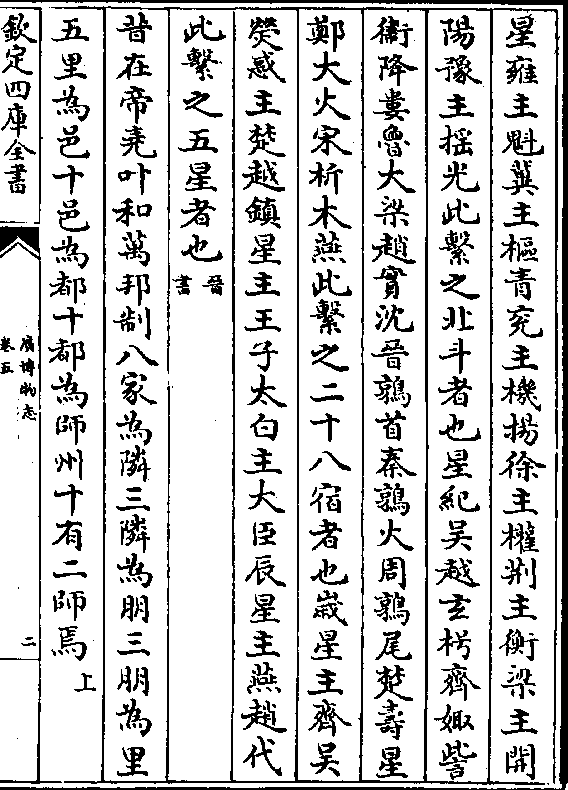 星雍主魁冀主樞青兖主機揚徐主權荆主衡梁主開
陽豫主揺光此繫之北斗者也星紀吳越𤣥枵齊娵訾
衞降婁魯大梁趙實沈晉鶉首秦鶉火周鶉尾楚壽星
鄭大火宋析木燕此繫之二十八宿者也嵗星主齊吳
熒惑主楚越鎮星主王子太白主大臣辰星主燕趙代
此繫之五星者也晉書
昔在帝堯叶和萬邦制八家為隣三隣為朋三朋為里
五里為邑十邑為都十都為師州十有二師焉上
欽定四庫全書
廣博物志
卷五
二